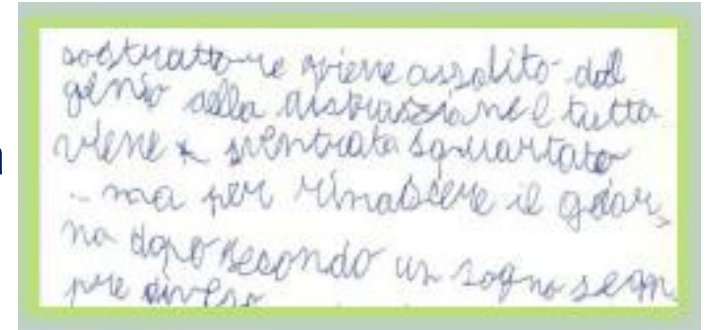 sostrattore viene assalito dal
genio della distruzione e tutto
viene sventrato squartato
- ma per rinascere il gior
no dopo secondo un sogno sem
pre diverso